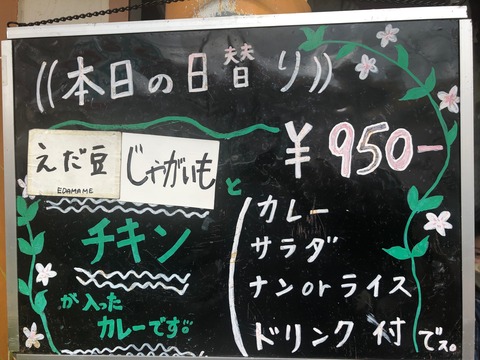 ((本日の日替り))
¥950-
えだ豆
EDAMAME
じゃがいもと
チキン
が入った
カレーです。
カレー
サラダ
ナンorライス
ドリンク付でス。